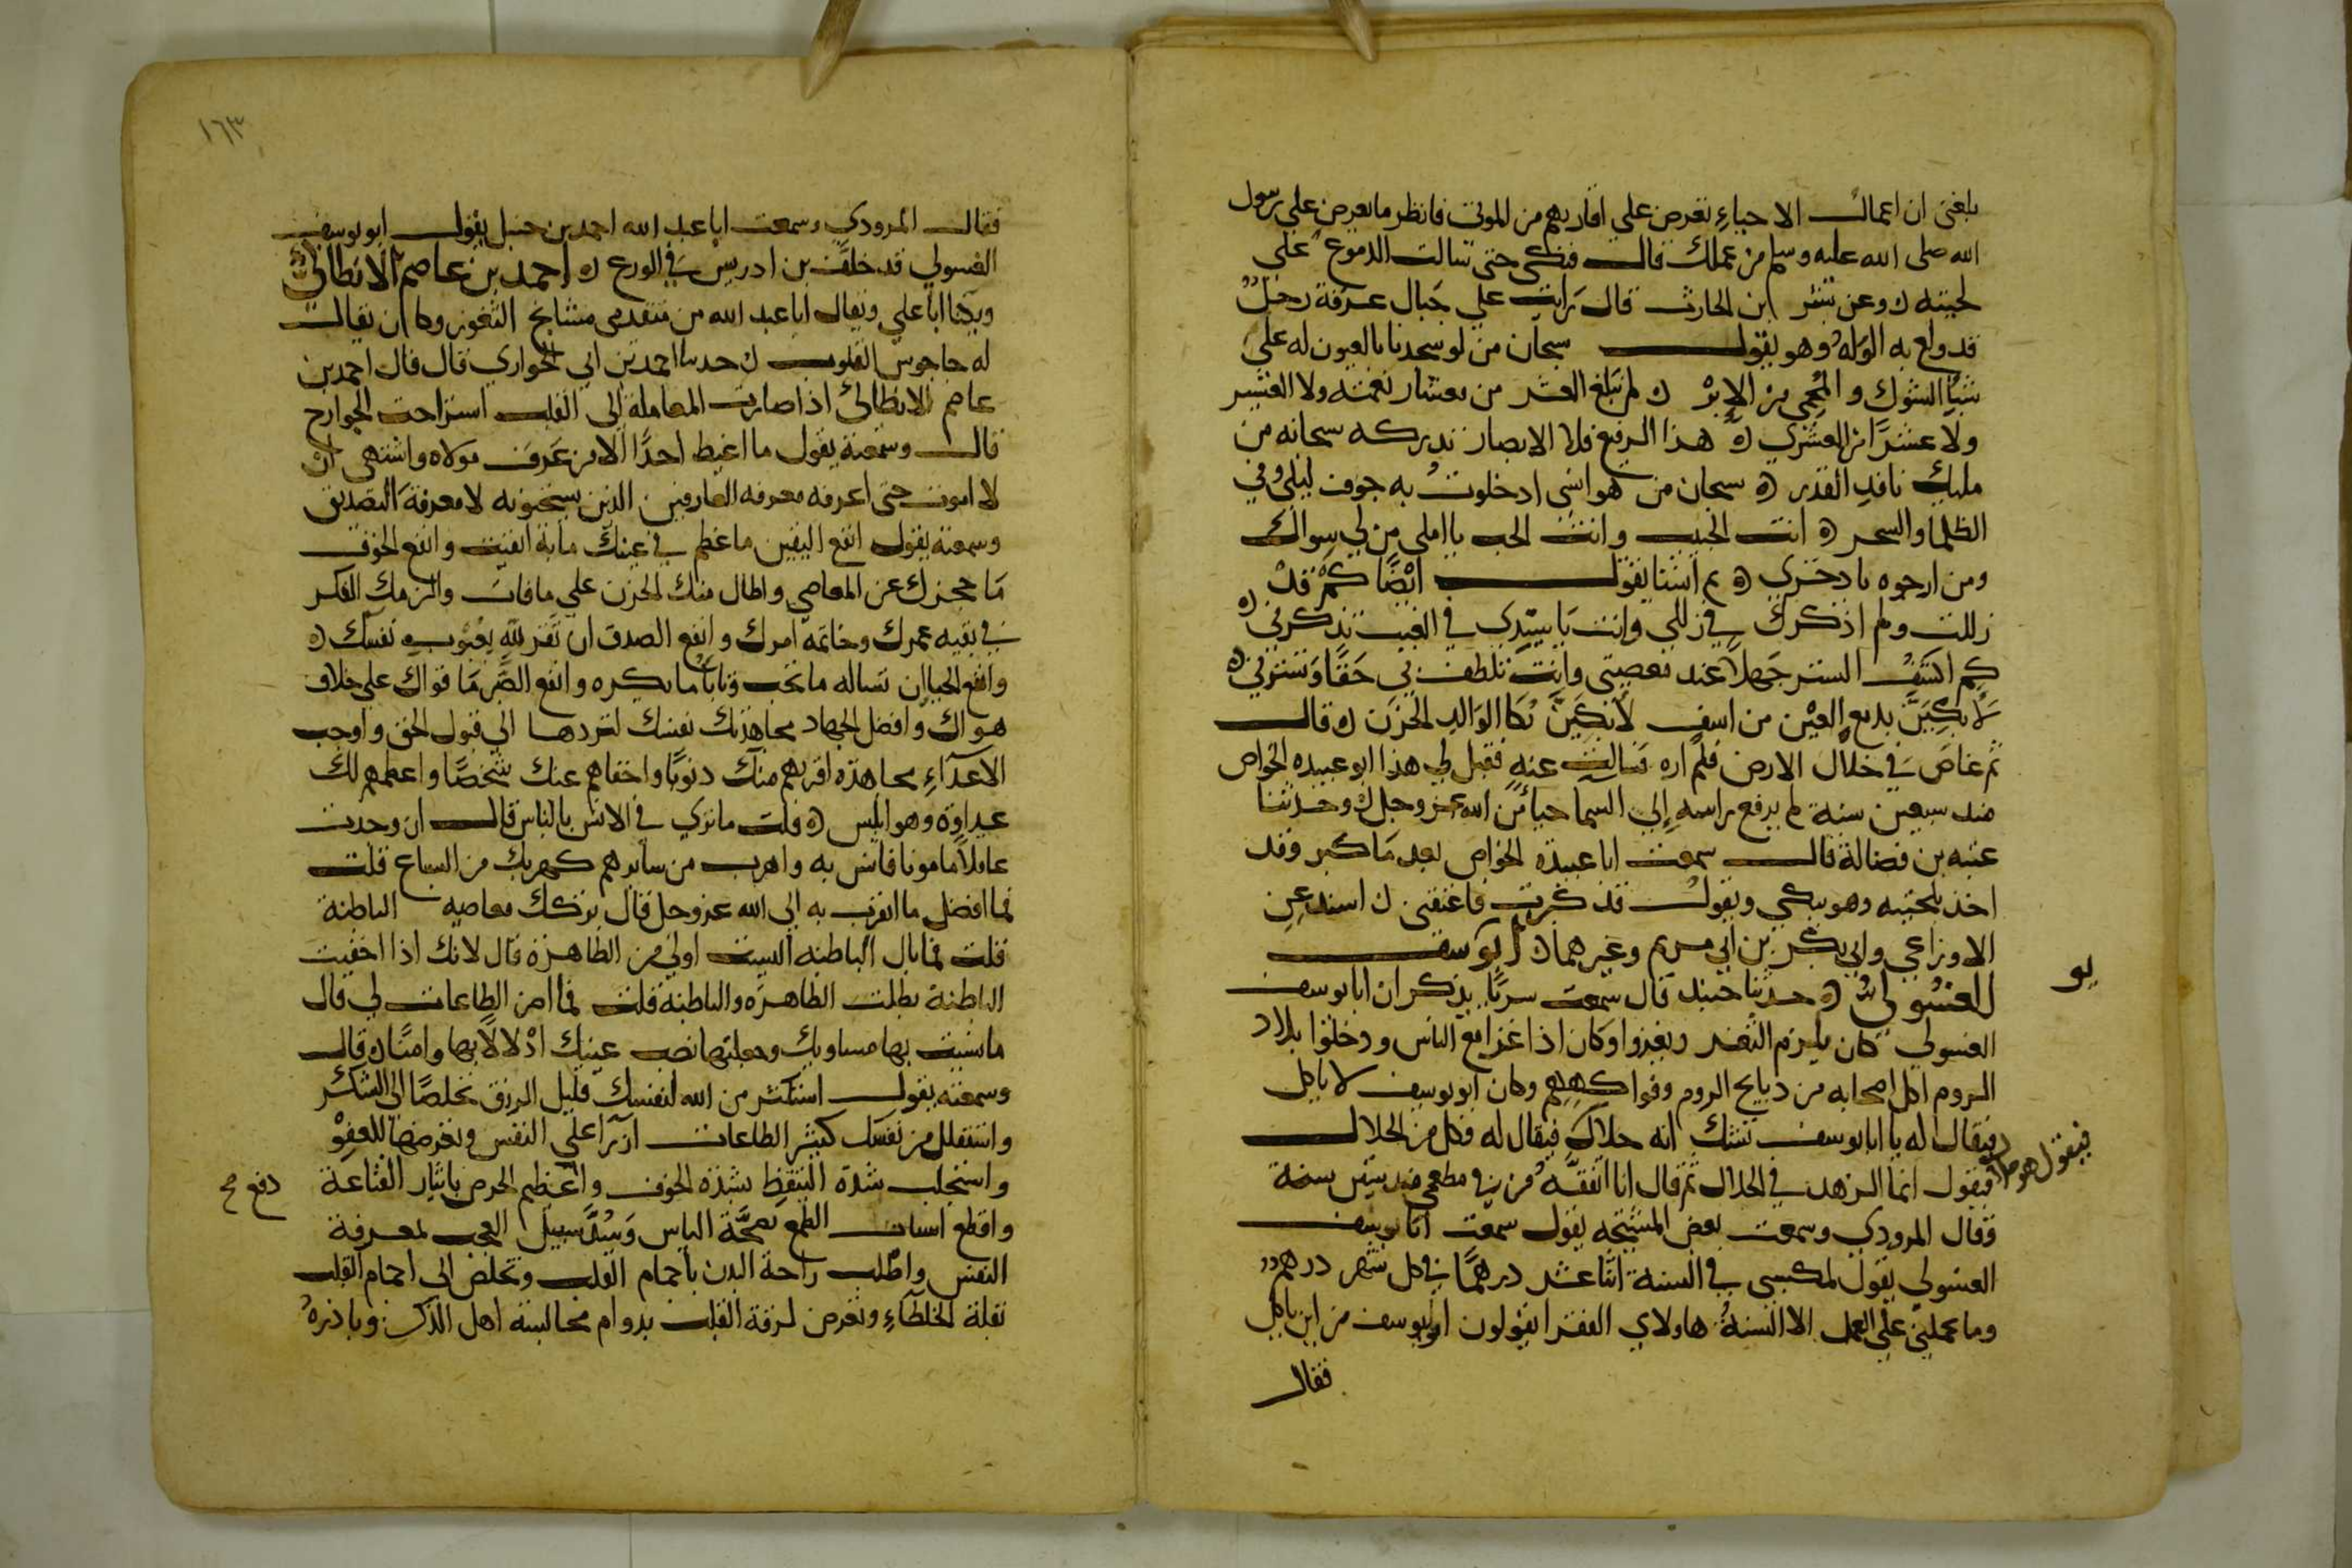 بلغني ان اعمال الاحياءِ تعرض علي اقاربهم من الموتي فانظر ما يعرض علي رسول
الله صلى الله عليه وسلم من عملك قال فبكى حتى سالت الدموع علي
لحيته ٥ وعن بشر ابن الحارث قال رَايت علي جَبال عرفة رجلٌ
قد ولع به الوَلهُ وهو يقول سبحان من لو سجدنا بالعيون له علي
شبا الشوك والمُحمى من الاِبرْ ٥ لم نبلغ العشر من معشار نعمته ولا العشير
ولا عشرًا من العشري ٥ هذا الرفيع فلا الابصار تدركه سبحانه من
مليكٍ نافدِ القدر ٥ سبحان من هو انسى اذ خلوتُ به جوف ليلى وفي
الظلما والسحر ٥ انت الحبيب وانت الحب يا املى من لي سواك
ومن ارجوه يا دخري ٥ ثم انشا يقول ايْضًا كم قدْ
زللت ولم اذكرك في زللي وانت يَا سيدي في الغيب تذكرني ٥
كم اكشفُ الستر جَهلاً عند معصيتى وانت تلطف بي حَقًا وَتسترني ٥
لاَبكِيَنَّ بدمع العيْن من اسفِ لاَبكيَنَّ بُكا الوَالهِ الحزَن ٥ قال
ثم غاصَ في خلال الارض فلم اره فسَالت عنه فقيل لي هذا ابو عبيده الخواص
منذ سبعين سنة لم يرفع راسه اِلي السما حيائًن الله عز وجل ٥ وحدثنا
عتبه بن فضالة قال سمعت ابا عبيدة الخواص بعد مَا كبر وقد
اخذ بلحيته وهو يبكي ويقولُ قد كبرت فاعتقنى ٥ اسند عِن
الاوزاعي وابي بكر بن ابي مريم وغيرهما ٥ ابو يوسف
الغسُولىُّ ٥ حدثنا جنيد قال سمعت سريًا يذكر ان ابا يوسف
يو
الغسولي كان يلزم الثغر ويغزوا وكان اذا غزا مع الناس ودخلوا بلاد
الروم اكل اصحابه من دبايح الروم وفواكهِهم وكان ابو يوسف لا ياكل
فيقال له يا ابا يوسف تشك انه حلال فيقال له فكل من الحلال
فيقول هو حلال
فيقول انما الزهد في الحلال ثم قال انا اتفقَّه مُن في مطعمي منذ ستين سنة
وقال المرودي وسمعت بعض المشيخه يقول سمعت ابا يوسف
الغسولي يقول لمكسبى في السنة اثنا عشر درهمًا في كل شهر درهمٌ
وما يحملني علي العمل الا السنةُ هاولاي الفقرا يقولون ابو يوسف من اين ياكل
فقال
١٦٣
فقال المرودي وسمعت ابا عبد الله احمد بن حنبل يقول ابو يوسف
الغسولي قد خلف بن ادريس في الورع ٥ احمد بن عاصم الانطاكيُّ
ويكنا ابا علي ويقال ابا عبد الله من متقدمى مشايخ الثغور وكا ان يقال
له جاجوس القلوب ٥ حدثنا احمد بن ابي الحواري قال قال احمد بن
عاصم الانطاكىُ اذا صارت المعاملة اِلي القلب استراحت الجوارح
قال وسمعته يقول ما اغبط احدًا الا من عَرف مولاه واشتهى ان
لا اموت حتى اعرفه معرفه العارفين الذين يستحيونه لا معرفةَ التصديق
وسمعته يقول انفع اليقين ما عظم في عينك ما به ايقنت وانفع الخوف
مَا حجزك عن المعاصي واطال منك الحزن علي ما فات والزمك الفكر
في بقيه عمرك وخاتمه امرك وانفع الصدق ان تقر لله بعُيوبِ نفسك ٥
وانفع الحيا ان تساله ما تحب وتاتي ما يكره وانفع الصَّبر مَا قواك علي خلاف
هواك وافضل الجهاد مجاهدتك نفسك لتردها الي قبول الحق واوجب
الاعدَآءِ مجاهدَه اقربهم منك دنوًا واخفاهم عنك شخصًا واعظمهم لك
عداوة وهو ابليس ٥ قلت ما تري في الانس بالناس قال ان وجدت
عاقلاً مامونا فانس به واهرب من سايرهم كهربك من السباع قلت
فما افضل ما اتقرب به الي الله عز وجل قال تركك معاصيه الباطنة
قلت فما بال الباطنه اليست اولي من الظاهرَة قال لانك اذا اخفيت
الباطنة بطلت الظاهرَه والباطنة قلت فما اضر الطاعات لي قال
ما نسيت بها مساويك وجعلتها نصب عينيك ادْلالاً بها وامنًا ٥ قال
وسمعته يقول استكثر من الله لنفسك قليل الرزق تخلصًا الي الشكر
واستقلل من نفسك كثير الطاعات ازرًا علي النفس وتعرضها للعفوْ
واستجلب شدة التيقظ بشدة الخوف واعَظم الحرص بايثار القناعة
دفع صح
واقطع اسباب الطمع بصحَّة الياس وَسُدَّ سبيل العجب لمعرفة
النفس واطلب راحة البدن باجمام القلب وتخلص الي اجمام القلب
بقلة الخلطاءِ وتعرض لرقة القلب بدوام مجالسة اهل الذكر وبادرهُ